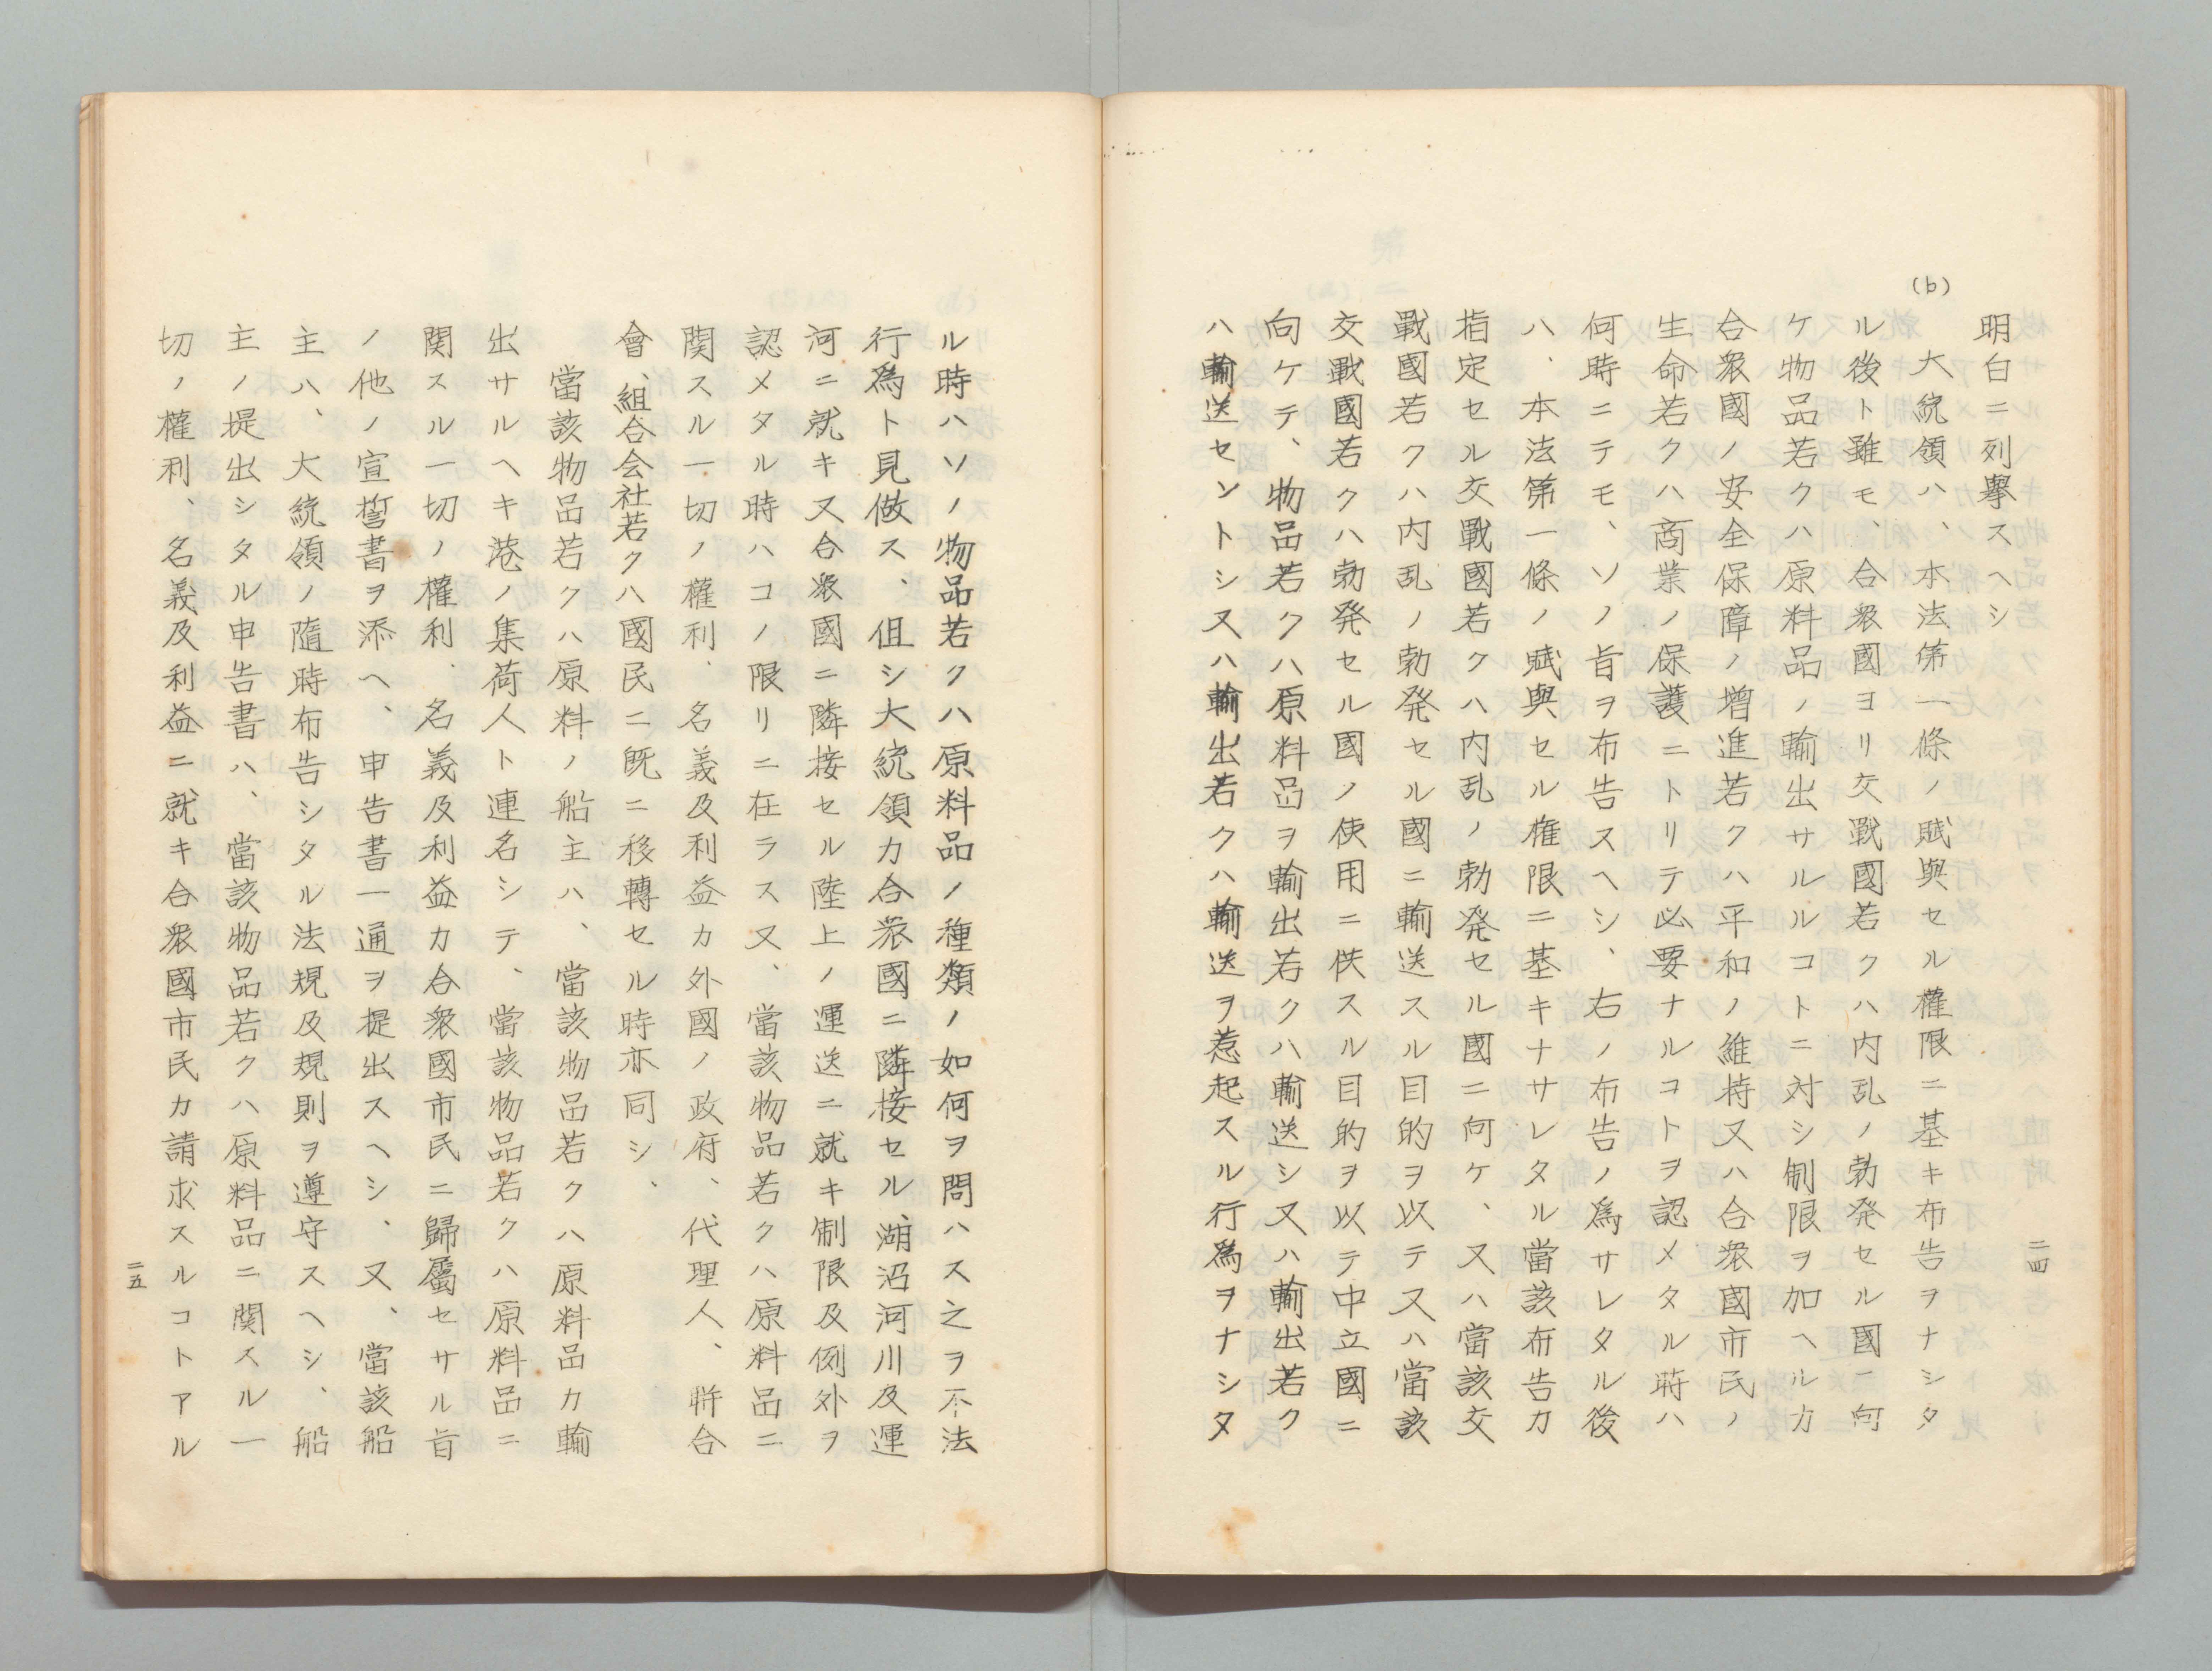 二四
明白ニ列擧スヘシ
(b)
大統領ハ、本法第一條ノ賦與セル權限ニ基キ布告ヲナシタ
ル後ト雖モ、合衆國ヨリ交戰國若クハ内乱ノ勃発セル國ニ向
ケ物品若クハ原料品ノ輸出サルルコトニ対シ制限ヲ加ヘルカ
合衆國ノ安全保障ノ增進若クハ平和ノ維持又ハ合衆國市民ノ
生命若クハ商業ノ保護ニトリテ必要ナルコトヲ認メタル時ハ
何時ニテモ、ソノ旨ヲ布告スヘシ、右ノ布告ノ爲サレタル後
ハ、本法第一條ノ賦與セル権限ニ基キナサレタル當該布告カ
指定セル交戰國若クハ内乱ノ勃発セル國ニ向ケ、又ハ當該交
戰國若クハ内乱ノ勃発セル國ニ輸送スル目的ヲ以テ又ハ當該
交戰國若クハ勃発セル國ノ使用ニ供スル目的ヲ以テ中立國ニ
向ケテ、物品若クハ原料品ヲ輸出若クハ輸送シ又ハ輸出若ク
ハ輸送セントシ又ハ輸出若クハ輸送ヲ惹起スル行爲ヲナシタ
ル時ハソノ物品若クハ原料品ノ種類ノ如何ヲ問ハス之ヲ不法
行爲ト見做ス、但シ大統領カ合衆國ニ隣接セル湖沼河川及運
河ニ就キ又合衆國ニ隣接セル陸上ノ運送ニ就キ制限及例外ヲ
認メタル時ハコノ限リニ在ラス又、當該物品若クハ原料品ニ
関スル一切ノ權利、名義及利益カ外國ノ政府、代理人、併合
會、組合会社若クハ國民ニ既ニ移轉セル時亦同シ、
當該物品若クハ原料ノ船主ハ、當該物品若クハ原料品カ輸
出サルヘキ港ノ集荷人ト連名シテ、當該物品若クハ原料品ニ
関スル一切ノ權利、名義及利益カ合衆國市民ニ歸屬セサル旨
ノ他ノ宣誓書ヲ添ヘ、申告書一通ヲ提出スヘシ、又、當該船
主ハ、大統領ノ隨時布告シタル法規及規則ヲ遵守スヘシ、船
主ノ提出シタル申告書ハ、當該物品若クハ原料品ニ関スル一
切ノ權利、名義及利益ニ就キ合衆國市民カ請求スルコトアル
二五